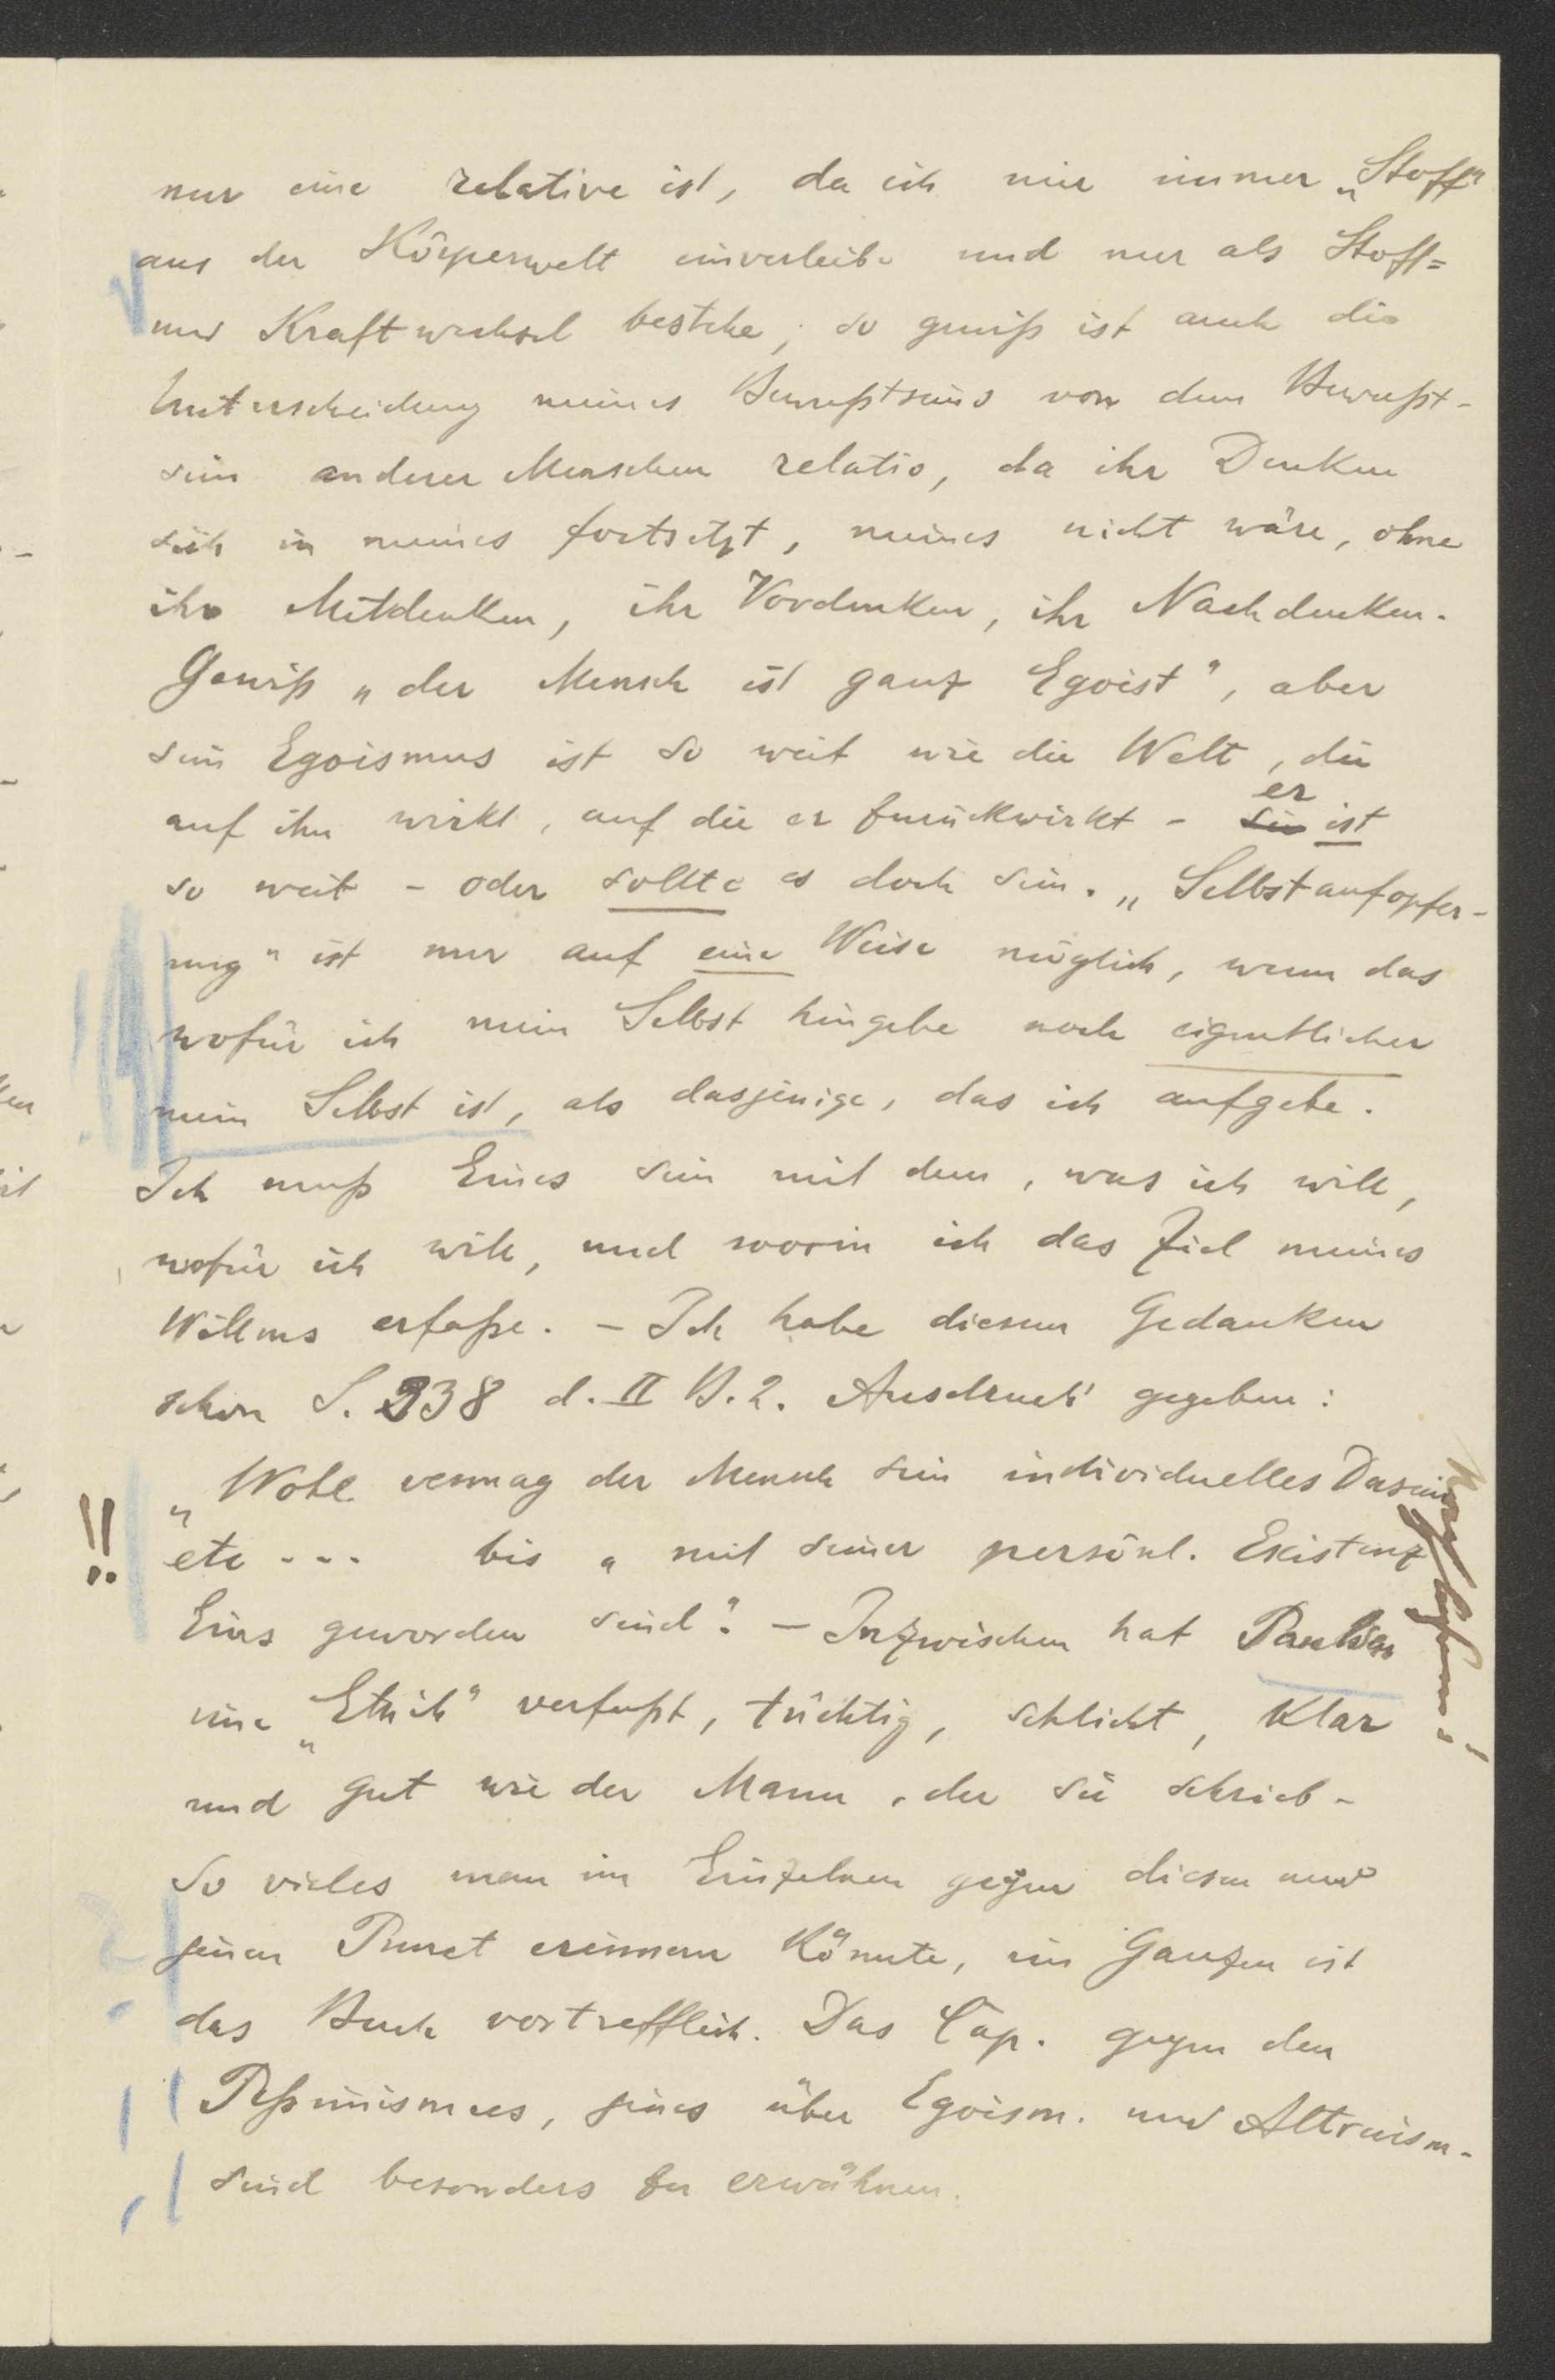 nur eine relative ist, da ich mir immer „Stoff“
aus der Körperwelt einverleibe und nur als Stoff=
und Kraftwechsel bestehe; so gewiß ist auch die
Unterscheidung meines Bewußtseins von dem Bewußt-
sein anderer Menschen relativ, da ihr Denken
sich in meines fortsetzt, meines nicht wäre, ohne
ihr Mitdenken, ihr Vordenken, ihr Nachdenken.
Gewiß „der Mensch ist ganz Egoist“, aber
sein Egoismus ist so weit wie die Welt, die
auf ihn wirkt, auf die er zurückwirkt – sie er ist
so weit – oder sollte es doch sein. „Selbstaufopfer-
ung“ ist nur auf eine Weise möglich, wenn das
wofür ich mein Selbst hingebe noch eigentlicher
mein Selbst ist, als dasjenige, das ich aufgebe.
Ich muß Eines sein mit dem, was ich will,
wofür ich will, und worin ich das Ziel meines
Willens erfaße. – Ich habe diesem Gedanken
schon S. 238 d. II B. 2. Ausdruck gegeben:
„Wohl vermag der Mensch sein individuelles Dasein
etc - - - bis „mit seiner persönl. Existenz
Eins geworden sind“. – Inzwischen hat Paulsen
eine „Ethik“ verfaßt, tüchtig, schlicht, klar
und gut wie der Mann, der sie schrieb –
So vieles man im Einzelnen gegen diesen und
jenen Punct erinnern könnte, im Ganzen ist
das Buch vortrefflich. Das Cap. gegen den
Peßimismus, jenes über Egoism. und Altruism.
sind besonders zu erwähnen.
!!